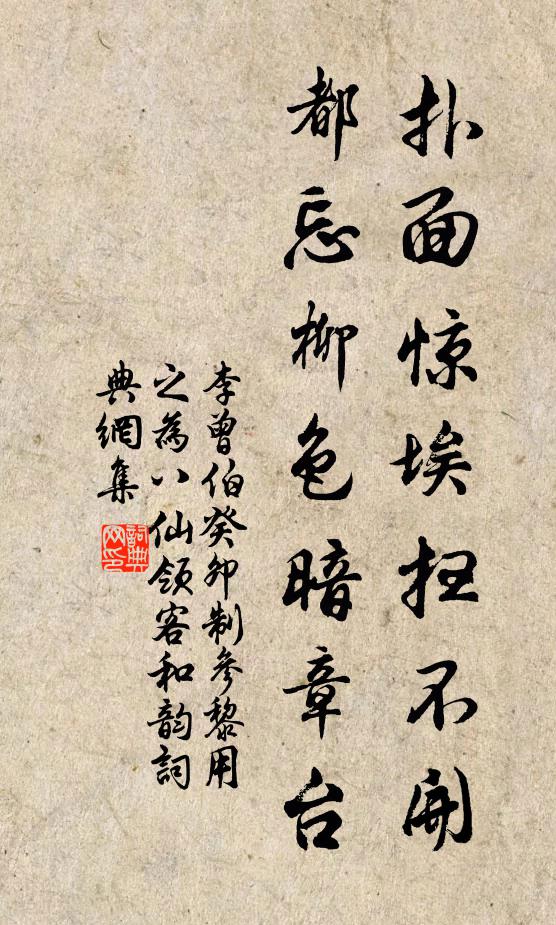 扑面惊埃扫不开
都忘柳色暗章台
李曾伯癸卯制参黎用
之為八仙领客和韵詞
典網集
詞典網印